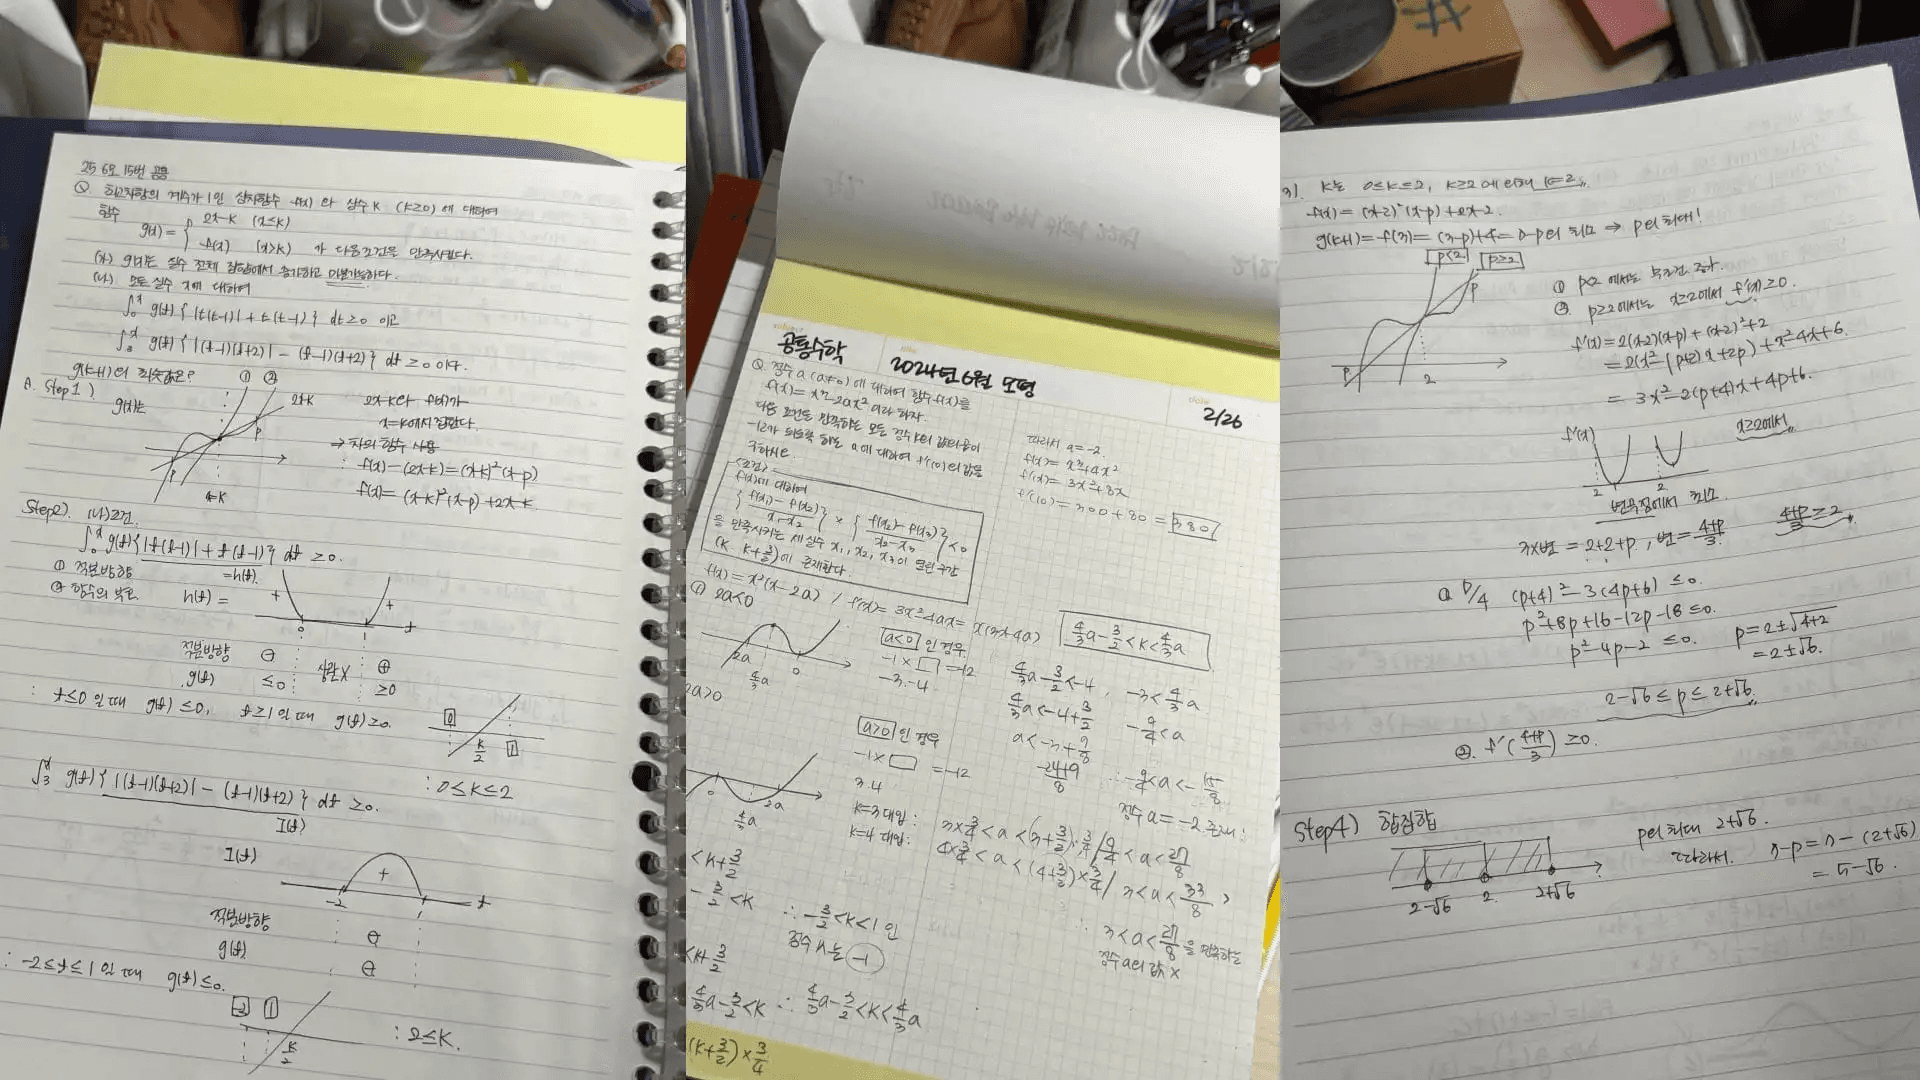 25 6모 15번 공통
Q. 최고차항의 계수가 1인 삼차함수 f(x) 와 상수 K (K≥0) 에 대하여
함수
g(x) = { 2x-K (x≤K)
f(x) (x>K) 가 다음조건을 만족시킨다.
(가) g(x)는 실수 전체 집합에서 증가하고 미분가능하다.
(나) 모든 실수 x에 대하여
∫₀ˣ g(t) { |t(t-1)| + t(t-1) } dt ≥0 이고
∫₃ˣ g(t) { |(t-1)(t+2)| - (t-1)(t+2) } dt ≥0 이다.
g(k+1)의 최솟값은?
A. Step 1)
g(x)는
① ②
2x-K
P
P
x=K
2x-K와 f(x)가
x=K에서 접한다.
→ 차의 함수 사용
: f(x)-(2x-K)=(x-K)²(x-p)
f(x)= (x-K)²(x-p) +2x-K.
Step2). (나)조건.
∫₀ˣ g(t){|t(t-1)| + t(t-1)} dt ≥0.
=h(t).
① 적분방향
② 함수의 부호
h(t) =
+ +
0 1 t
적분방향 ⊖ 상관X ⊕
g(t) ≤0 ≥0
: t≤0 일 때 g(t) ≤0, t≥1 일 때 g(t)≥0.
0 K/2 1
: 0≤K≤2
∫₃ˣ g(t) { |(t-1)(t+2)| - (t-1)(t+2) } dt ≥0.
I(t)
I(t)
+
-2 1 t
적분방향 ⊖
g(t) ⊖
: -2≤t≤1 일 때 g(t)≤0.
-2 1
K/2
: 2≤K.
공통수학
2024년 6월 모평
date
2/26
Q. 정수 a (a≠0) 에 대하여 함수 f(x)를
f(x)= x³-2ax² 이라 하자.
다음 조건을 만족하는 모든 정수 K의 값의 곱이
-12가 되도록 하는 a에 대하여 f'(10)의 값을
구하시오.
<조건>
f(x)에 대하여
{ f(x₁)-f(x₂) / x₁-x₂ } × { f(x₂)-f(x₃) / x₂-x₃ } <0
을 만족시키는 세 실수 x₁, x₂, x₃이 열린구간
(K, K+3/2)에 존재한다.
따라서 a=-2.
f(x)= x³+4x²
f'(x)= 3x²+8x
f'(10)= 300+80 = 380
f(x)= x²(x-2a) / f'(x)= 3x²-4ax= x(3x-4a)
① 2a<0
2a 4/3a 0
a<0 인 경우
-1 × □ = -12
-3, -4
4/3a - 3/2 < K < 4/3a
4/3a - 3/2 < -4, -3 < 4/3a
4/3a < -4 + 3/2 -9/4 < a
a < -3 + 9/8
-24+9/8 ∴ -9/4 < a < -15/8
정수 a= -2 존재 :
2a>0
0 4/3a 2a
a>0 인 경우
-1 × □ = -12
3, 4
K=3 대입 : 3×3/4 < a < (3+3/2)·3/4 / 9/4 < a < 27/8
K=4 대입 : 4×3/4 < a < (4+3/2)×3/4 / 3 < a < 33/8
<K+3/2
-3/2 <K ∴ -3/2 <K<1 인
정수 K는 -1
: 3<a<27/8 을 만족하는
정수 a의 값 X
<K+3/2
4/3a - 3/2 <K ∴ 4/3a - 3/2 <K< 4/3a
(K+3/2)×3/4
3). K는 0≤K≤2, K≥2 에 의해 K=2.
f(x)= (x-2)²(x-p) +2x-2.
g(k+1)= f(3)= (3-p)+4= 7-p의 최소 → p의 최대!
P<2 P≥2
P P
2
① P<2 에서는 무조건 증가.
② P≥2에서는 x≥2에서 f'(x)≥0.
f'(x)= 2(x-2)(x-p) + (x-2)²+2
= 2(x²-(p+2)x+2p) + x²-4x+6.
= 3x²-2(p+4)x+4p+6.
f'(x) x≥2에서
2 2
변곡점에서 최소
3×변 = 2+2+P. , 변= 4+P/3 4+P/3 ≥2
① D/4 (p+4)²-3(4p+6) ≤0.
p²+8p+16-12p-18≤0.
p²-4p-2 ≤0. p=2±√4+2
=2±√6.
2-√6 ≤ p ≤ 2+√6
② f'(4+P/3) ≥0.
Step4) 합집합
2-√6 2 2+√6
p의 최대 2+√6.
따라서. 7-p= 7-(2+√6)
= 5-√6.